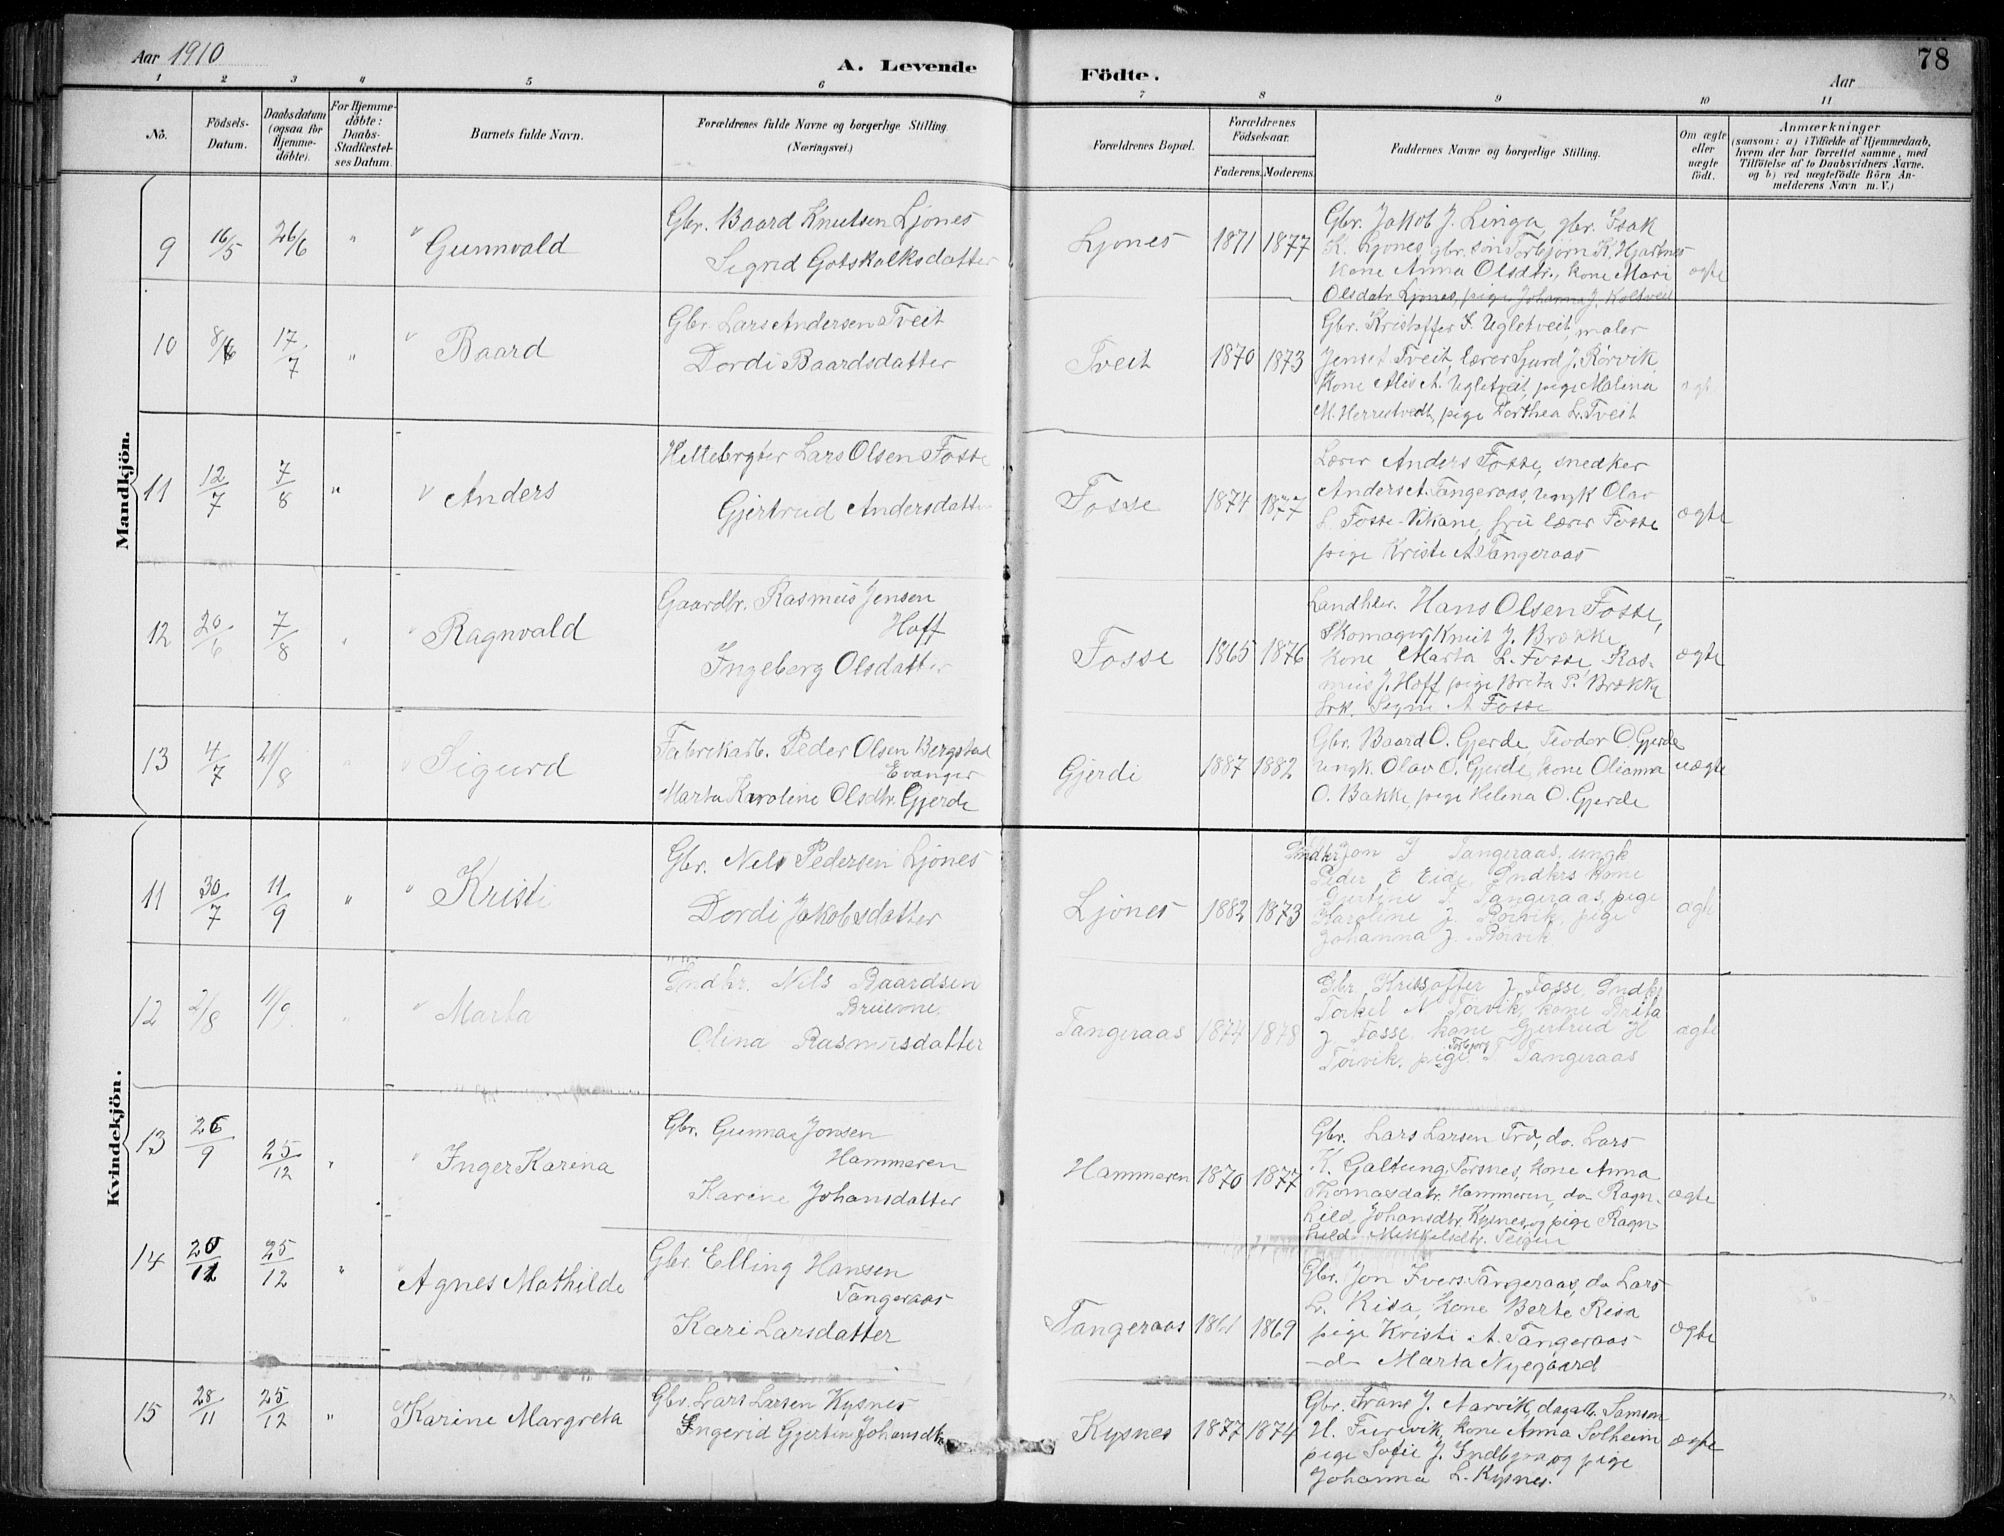 Aar 1910
A. Levende Födte.
Aar
78
1 2 3 4 5 6 7 8 9 10 11
No.
Födsels-Datum.
Daabsdatum (ogsaa for Hjemme-döbte).
For Hjemme-döbte: Daabs-Stadfæstel-ses Datum.
Barnets fulde Navn.
Forældrenes fulde Navne og borgerlige Stilling.
(Næringsvei.)
Forældrenes Bopæl.
Forældrenes Födselsaar.
Faderens. Moderens.
Faddernes Navne og borgerlige Stilling.
Om ægte eller uægte födt.
Anmærkninger
(saasom: a) i Tilfælde af Hjemmedaab, hvem der har forrettet samme, med Tilföielse af to Daabsvidners Navne, og b) ved uægtefödte Börn An-melderens Navn m. V.)
Mandkjön.
9 16/5 26/6 " " Gunnvald
Gbr. Baard Knutsen Ljones
Sigrid Gotskalksdatter
Ljones 1871 1877
Gbr. Jakob J. Linga, gbr. Isak
K. Ljones, gbr. søn Torbjørn K. Hjartnes
kone Anna Olsdtr., kone Mari
Olsdatr. Ljones, pige Johanna J. Koltveit
ægte
10 8/6 17/7 " " Baard
Gbr. Lars Andersen Tveit
Dordi Baardsdatter
Tveit 1870 1873
Gbr. Kristoffer S. Ugletveit, maler
Jens Tveit, lærer Sjurd J. Rørvik,
kone Alis A. Ugletveit, pige Malina
M. Herrestvedt, pige Dorthea L. Tveit
ægte
11 12/7 7/8 " " Anders
Lars Olsen Fosse
Gjertrud Andersdatter
Fosse 1874 1877
Lærer Anders Fosse, snedker
Anders A. Tangeraas, ungk Olav
L. Fosse-Vikane, fru lærer Fosse
pige Kristi A. Tangeraas
ægte
12 20/6 7/8 " " Ragnvald
Gaardbr. Rasmus Jensen
Hoff
Ingeborg Olsdatter
Fosse 1865 1876
Landhtr. Hans Olsen Fosse,
Skomager Knut J. Brække
kone Marta L. Fosse, Ras-
mus J. Hoff pige Brita P. Brække
frk. Signe A Fosse
ægte
13 4/7 21/8 " " Sigurd
Fabrikarb. Peder Olsen Bergstad
Evanger
Marta Karoline Olsdtr. Gjerde
Gjerdi 1887 1882
Gbr. Baard O. Gjerde, Teodor O Gjerde
ungk. Olav O. Gjerde, kone Olianna
O. Bakke, pige Helena O. Gjerde
uægte
Kvindekjön.
11 30/7 11/9 " " Kristi
Gbr. Nils Pedersen Ljones
Dordi Jakobsdatter
Ljones 1882 1873
Gmdbr Jon I Tangeraas, ungk
Peder E Eide, Gmdbrs kone
Gjertine T Tangeraas, pige
Karoline J. Rörvik, pige
Johanna J. Rörvik
ægte
12 2/8 11/9 " " Marta
Gmdbr. Nils Baardsen
Olina Rasmusdatter
Tangeraas 1874 1878
Gbr Kristoffer J Fosse, Gmdbr
Torkel N Torvik, kone Brita
J Fosse kone Gjertrud H
Torvik, pige Torbjørg T Tangeraas
ægte
13 26/9 25/12 " " Inger Karina
Gbr. Gunnar Jonsen
Hammeren
Karine Johansdatter
Hammeren 1870 1877
Gbr. Lars Larsen Tro, do. Lars
K. Galtung, Torsnes, kone Anna
Thomasdatr. Hammeren, do Ragn-
hild Johansdtr. Kysnes, og pige Ragn-
hild Mikkelsdtr. Teigen
ægte
14 20/11 25/12 " Agnes Mathilde
Gbr. Elling Hansen
Tangeraas
Kari Larsdatter
Tangeraas 1861 1869
Gbr. Jon Ivers. Tangeraas, do Lars
L. Risa, kone Berte Risa
pige Kristi A. Tangeraas
-d- Marta Nyegaard
ægte
15 28/11 25/12 " " Karine Margreta
Gbr. Lars Larsen Kysnes
Ingerid Gjertin Johansdtr
Kysnes 1877 1874
Gbr. Frans J. Aarvik, dagarb. Samson
H. Furuvik, kone Anna Solheim
pige Sofie J. Indbjoa, og pige
Johanna L. Kysnes.
ægte